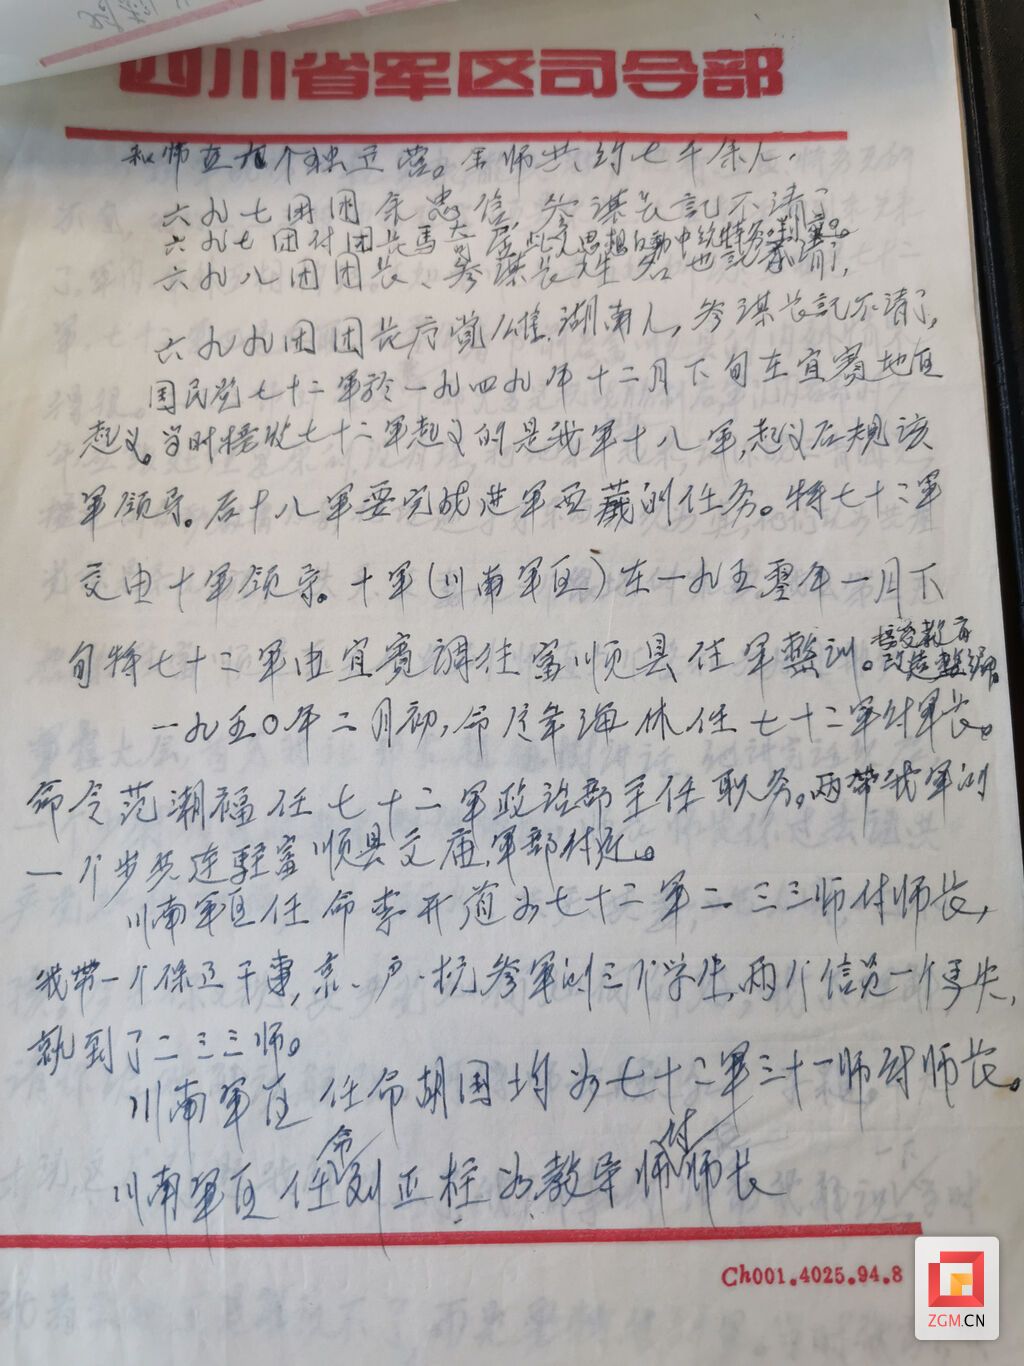 四川省军区司令部
和师直有个独立营。全师共约七千余人.
六九七团团余忠信,参谋长記不清了
六九七团付团长馬
六九八团团长、参谋长姓名也記不清了,
六九九团团长 湖南人,参谋长記不清了,
国民党七十二軍於一九四九年十二月下旬在宜賓地区
起义。当时接收七十二軍起义的是我軍十八軍,起义后规该
軍领导。后十八軍要完成进军西藏的任务。将七十二軍
交由十軍领导。十軍(川南軍区)在一九五零年一月下
旬将七十二軍由宜賓調往富顺县住軍整训。接受教育改造整编。
一九五〇年二月初,命 海林任七十二軍付軍长。
命令范潮福任七十二軍政治部主任职务。两带我軍的
一个步兵连駐富顺县文庙,軍部付近。
川南軍区任命李开道为七十二軍二三三师付师长,
我带一个保卫干事,京、沪、杭参军的三个学生,两个信员一个马夫,
就到了二三三师。
川南軍区任命胡国均为七十二軍三十一师付师长。
川南軍区任命刘正柱为教导师付师长
Ch001.4025.94.8
ZGM.CN